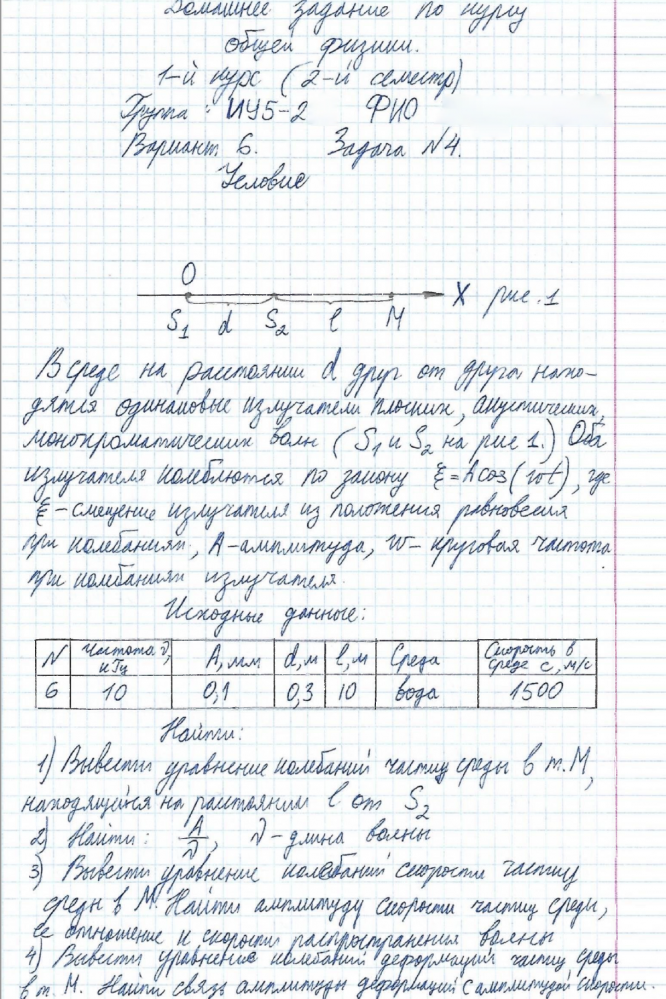 Домашнее задание по курсу
общей физики.
1-й курс (2-й семестр)
Группа: ИУ5-2 ФИО
Вариант 6. Задача N4.
Условие
O
X рис. 1
S1 d S2 l M
В среде на расстоянии d друг от друга нахо-
дятся одинаковые излучатели плоских, акустических,
монохроматических волн (S1 и S2 на рис 1.) Оба
излучателя колеблются по закону ξ=Acos(wt), где
ξ-смещение излучателя из положения равновесия
при колебаниях, A-амплитуда, w-круговая частота
при колебаниях излучателя.
Исходные данные:
N Частота ν, кГц A, мм d, м l, м Среда Скорость в среде c, м/с
6 10 0,1 0,3 10 вода 1500
Найти:
1) Вывести уравнение колебаний частиц среды в т. M,
находящейся на расстоянии l от S2
2) Найти: A/λ, λ-длина волны
3) Вывести уравнение колебаний скорости частиц
среды в M. Найти амплитуду скорости частиц среды,
ее отношение к скорости распространения волны
4) Вывести уравнение колебаний деформации частиц среды
в т. M. Найти связь амплитуды деформаций с амплитудой скорости.